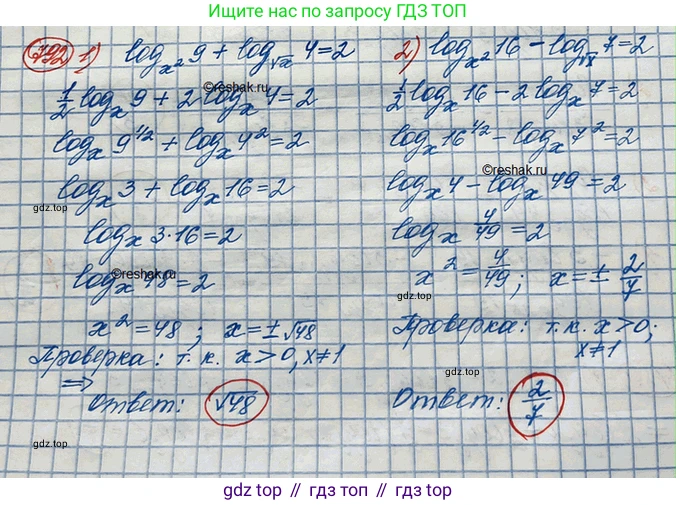 Ищите нас по запросу ГДЗ ТОП
792 1) log_{x²} 9 + log_{√x} 4 = 2
½ log_x 9 + 2 log_x 4 = 2
©reshak.ru
log_x 9^{1/2} + log_x 4² = 2
log_x 3 + log_x 16 = 2
gdz.top
log_x 3·16 = 2
log_x 48 = 2
©reshak.ru
x² = 48; x = ±√48
Проверка: т.к. x > 0, x ≠ 1
⇒
Ответ: √48
gdz.top
2) log_{x²} 16 - log_{√x} 7 = 2
½ log_x 16 - 2 log_x 7 = 2
log_x 16^{1/2} - log_x 7² = 2
©reshak.ru
log_x 4 - log_x 49 = 2
log_x 4/49 = 2
x² = 4/49; x = ± 2/7
gdz.top
Проверка: т.к. x > 0;
x ≠ 1
gdz.top
Ответ: 2/7
gdz top // гдз топ // gdz.top